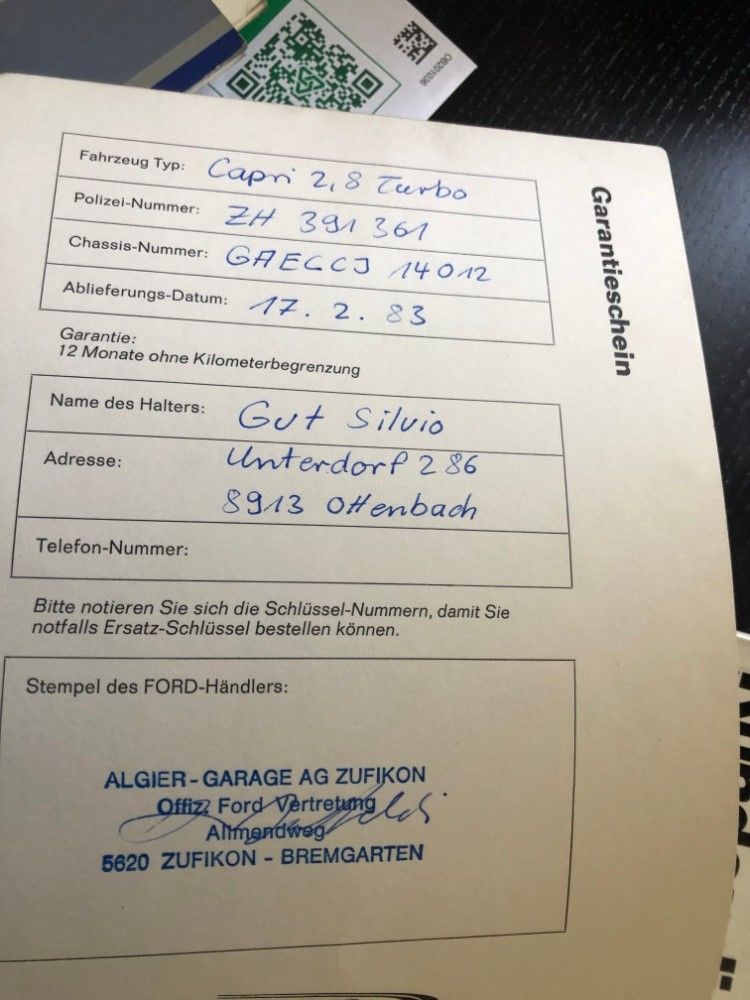 OB201036
Garantieschein
Fahrzeug Typ: Capri 2,8 Turbo
Polizei-Nummer: ZH 391 361
Chassis-Nummer: GAECCJ 14012
Ablieferungs-Datum: 17. 2. 83
Garantie:
12 Monate ohne Kilometerbegrenzung
Name des Halters: Gut Silvio
Adresse: Unterdorf 286
8913 Ottenbach
Telefon-Nummer:
Bitte notieren Sie sich die Schlüssel-Nummern, damit Sie
notfalls Ersatz-Schlüssel bestellen können.
Stempel des FORD-Händlers:
ALGIER-GARAGE AG ZUFIKON
Offiz. Ford Vertretung
Allmendweg
5620 ZUFIKON - BREMGARTEN